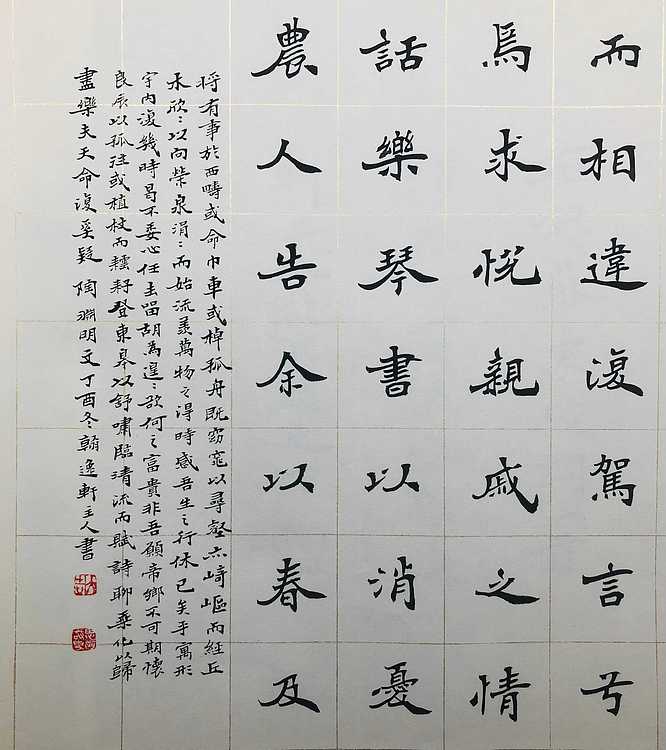 而相違復駕言兮
焉求悅親戚之情
話樂琴書以消憂
農人告余以春及
将有事於西疇或命巾車或棹孤舟既窈窕以尋壑亦崎嶇而經丘
木欣〻以向榮泉涓〻而始流羨萬物之得時感吾生之行休已矣乎寓形
宇內復幾時曷不委心任去留胡為遑〻欲何之富貴非吾願帝鄉不可期懷
良辰以孤往或植杖而耘耔登東皋以舒嘯臨清流而賦詩聊乘化以歸
盡樂夫天命復奚疑 陶淵明文丁酉冬翰逸軒主人書